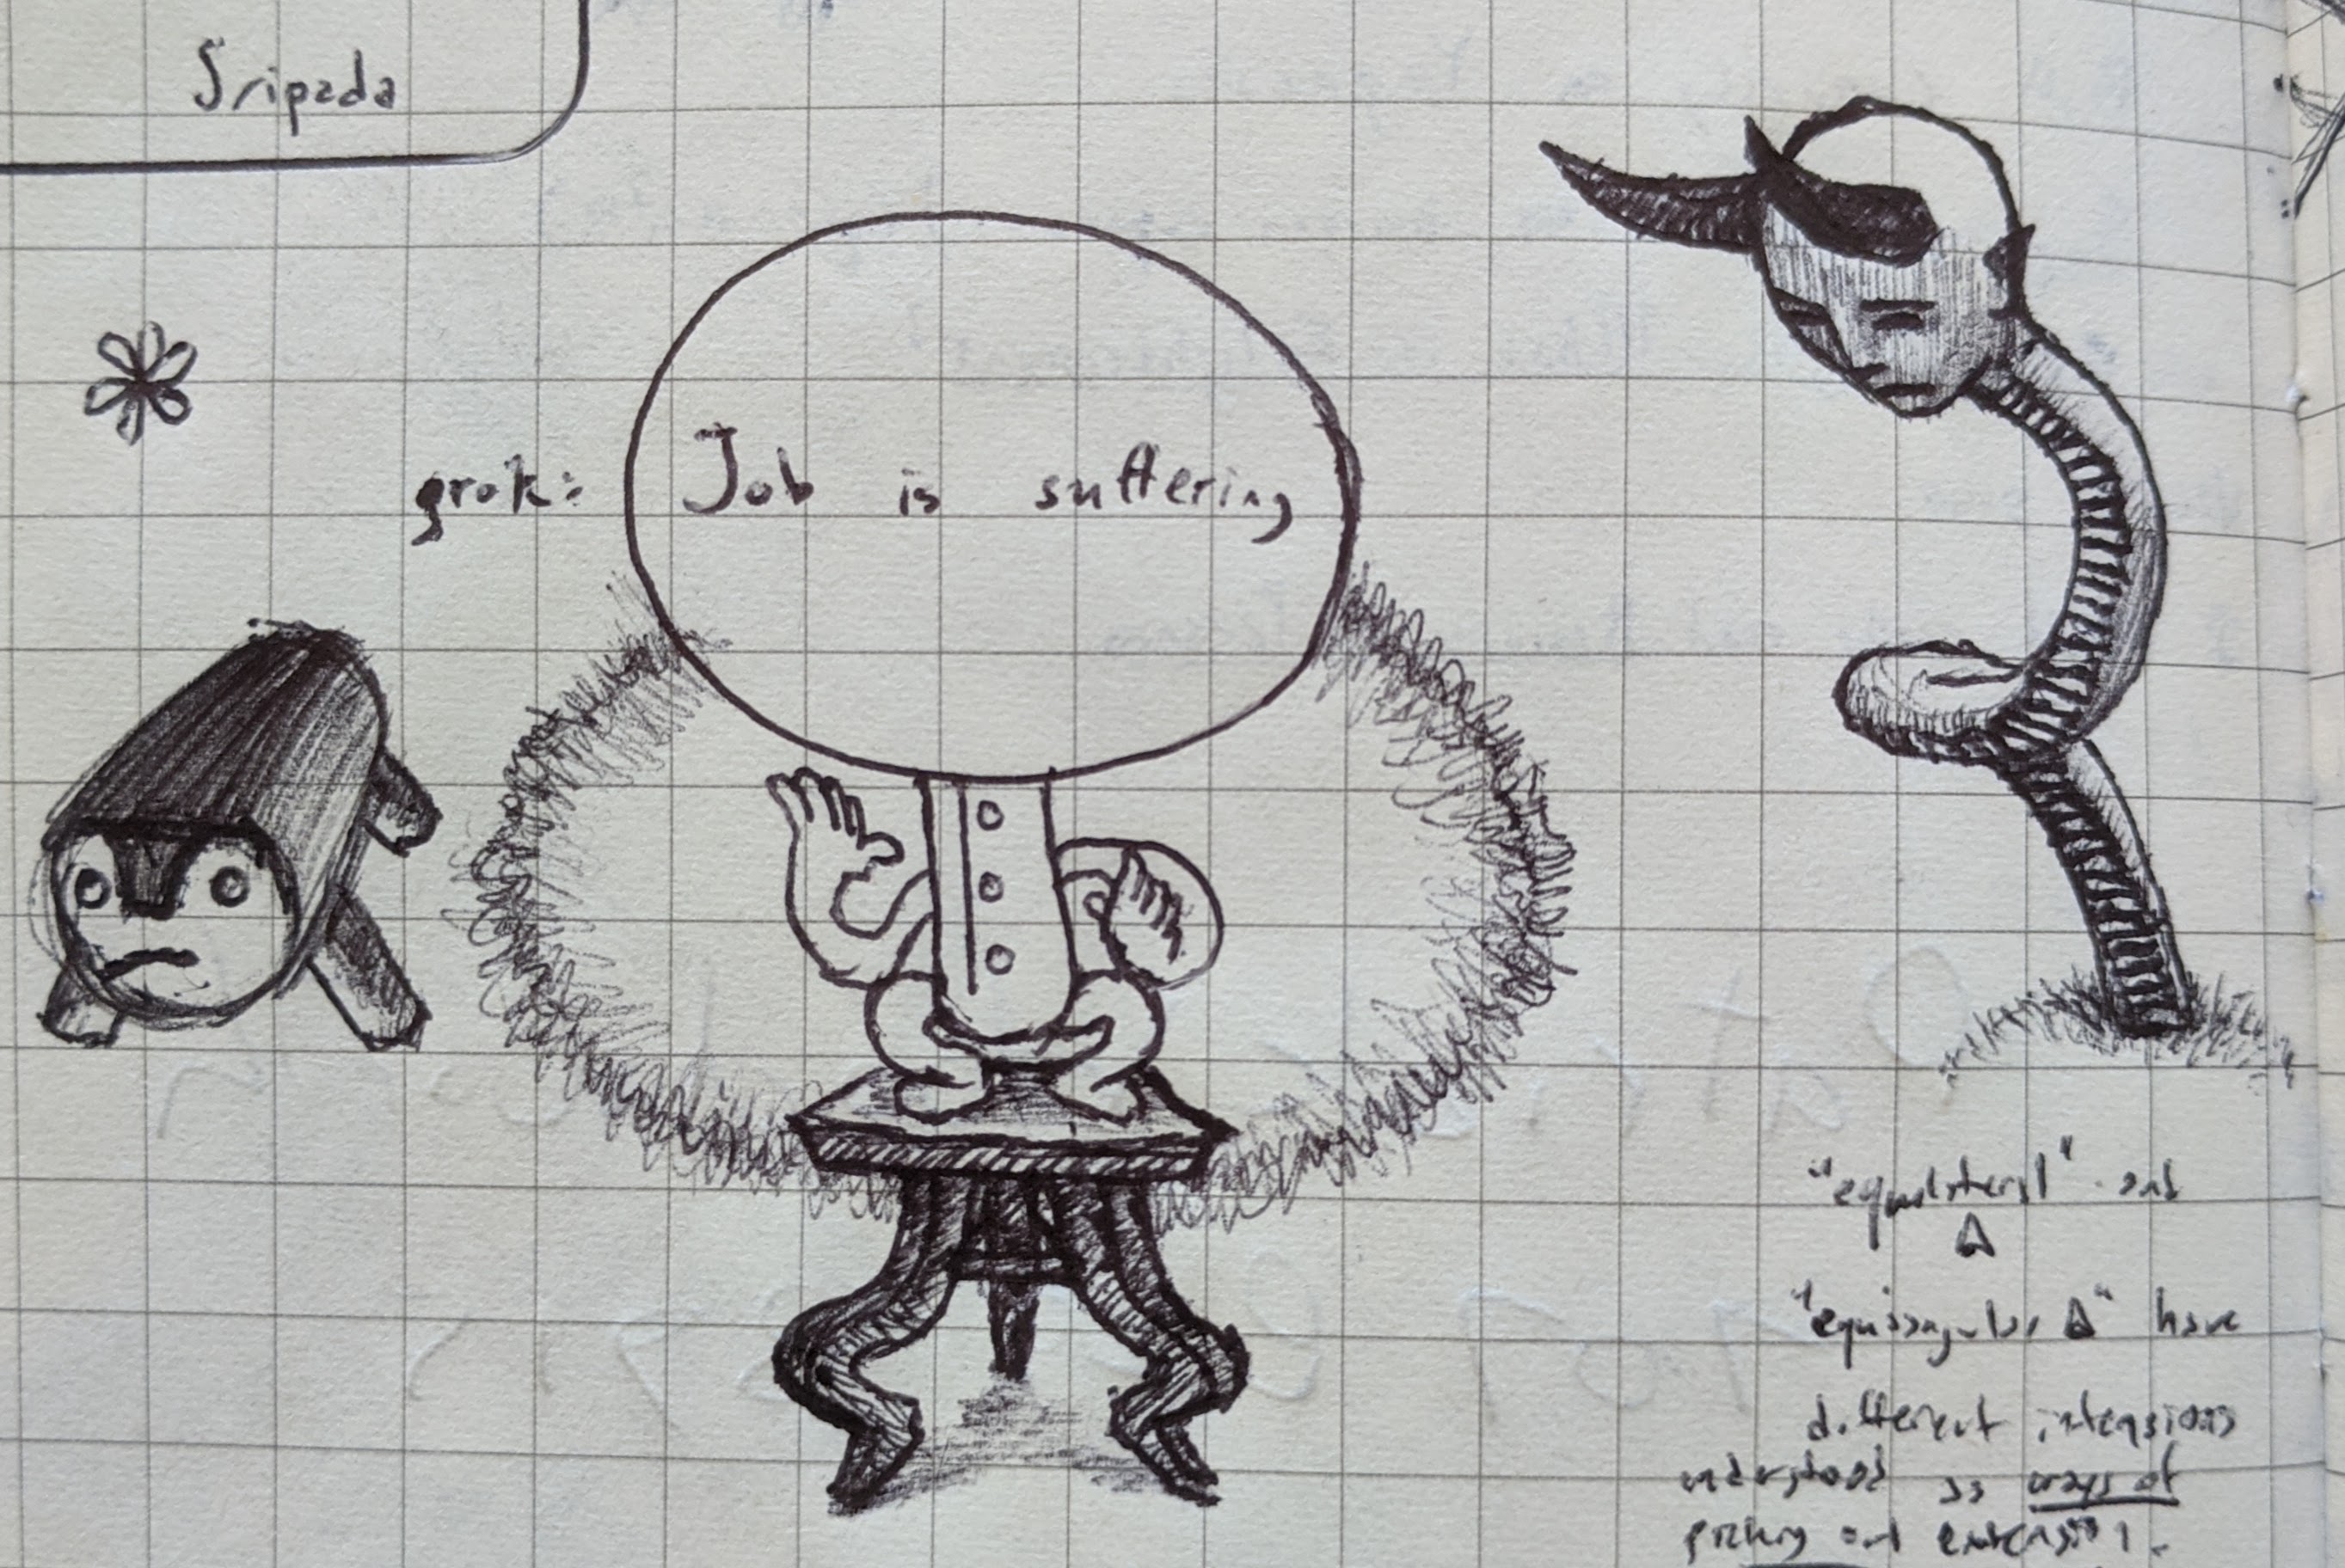 Sripada
grok: Job is suffering
"equilateral" and
"equiangular Δ" have
different intensions
understood as ways of
picking out extension.